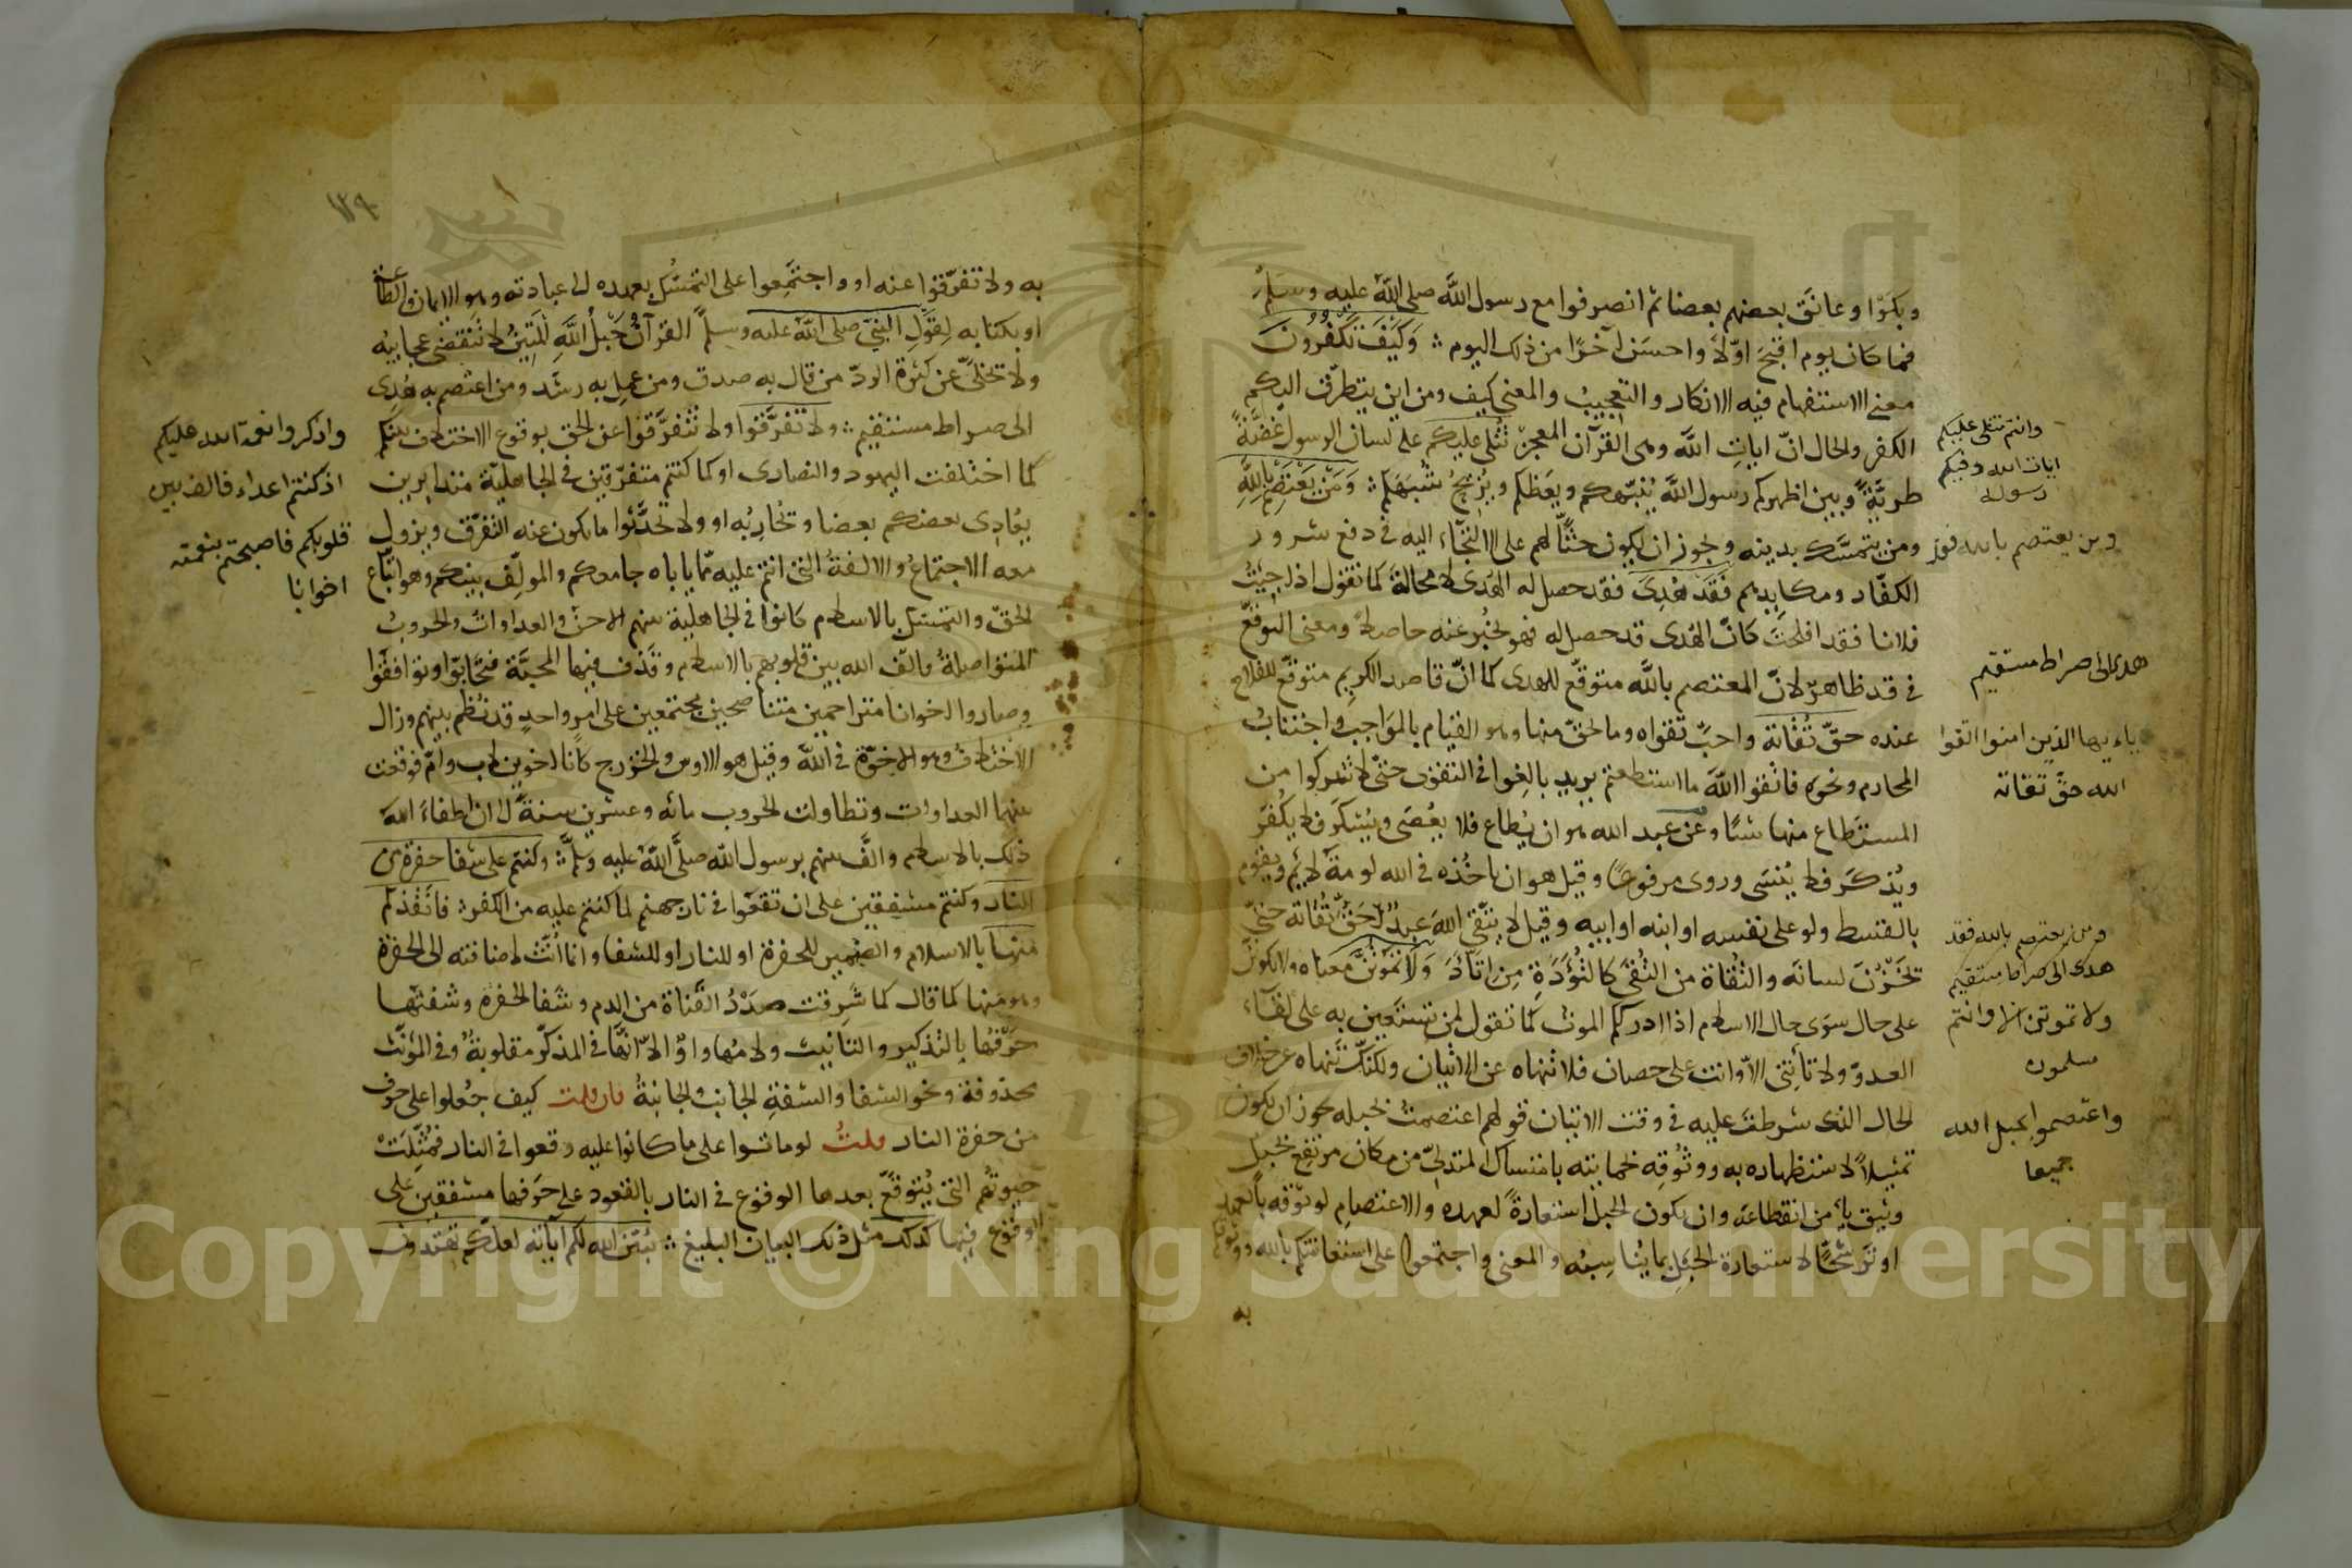 وبكوا وعانَق بعضهم بعضا ثم انصرفوا مع رسول اللَّه صلى اللَّه عليه وسلم
فما كان يوم اقبحَ اوّلاً واحسنَ آخرًا من ذلك اليوم ؞ وَكَيْفَ تَكْفُرُونَ
معنى الاستفهام فيه الانكار والتعجيب والمعنى كيف ومن اين يتطرّق اليكم
الكفر والحال انّ ايات اللَّه وهى القرآن المعجز تُتْلى عليكم على لسان الرسول غضَّةً
طريّةً وبين اظهركم رسول اللَّه يُنَبّهكم ويَعظكم ويُزيحُ شُبهَكم ؞ وَمَنْ يَعْتَصِمْ بِاللَّهِ
ومن يتمسّك بدينه ويجوز ان يكون حثًّا لهم على الالتجاء اليه فى دفع شرور
الكفّار ومكايدهم فَقَدْ هُدِىَ فقد حصل له الهُدى لا محالة كما تقول اذا جئتُ
فلانا فقد افلحتَ كانّ الهُدى قد حصل له فهو يخبر عنه حاصلاً ومعنى التوقّع
فى قد ظاهر لانّ المعتصم باللَّه متوقّع للهدى كما انّ قاصد الكريم متوقّع للفلاح
عنده حقّ تُقاته واجبَ تقواه وما يحقّ منها وهو القيام بالمَواجب واجتنابُ
المحارم ونحوه فاتّقوا اللَّه ما استطعتم يريد بالِغوا فى التقوى حتّى لا تتركوا من
المستَطاع منها شيئًا وعن عبد الله هو ان يُطاع فلا يعُصَى ويُشكَرَ فلا يُكْفَرَ
ويُذكَرَ فلا يُنسَى وروى مرفوعًا وقيل هو ان لا تاخُذه فى الله لومةَ لائمٍ ويقوم
بالقسط ولو على نفسه او ابنه او ابيه وقيل لا يتّقى اللهَ عبدٌ حَقَّ تُقَاته حتّى
تَخزُنَ لسانَه والتُقاة من اتّقى كالتُؤَدَةِ مِن اتّأدَ وَلَا تَمُوتُنَّ معناه ولا تكونُنّ
على حال سوَى حال الاسلام اذا ادرككم الموت كما تقول لمن تستعين به على لقآء
العدوّ ولا تأتِنى الاّ وانت على حصان فلا تنهاه عن الاتيان ولكنّك تنهاه عن خلاف
الحال الذى شرطتَ عليه فى وقت الاتيان قولهم اعتصمتُ بحبله يجوز ان يكون
تمثيلاً لاستظهاره به ووثُوقِه بحمايته بامتساك المتدلِّى من مكان مرتفع بحبل
وثيق يأمن انقطاعه وان يكون الحبلُ استعارةً لعهده والاعتصامِ لوثوقه بالعهد
او ترشيحًا لاستعارة الحبل بما يُناسِبُه والمعنى واجتمعوا على استعانتكم بالله ووثوقكم
به
وانتم تتلى عليكم
ايات الله وفيكم
رسوله
ومن يعتصم بالله فقد
هدى الى صراط مستقيم
ياءيها الذين امنوا اتقوا
الله حقّ تقاته
ومن يعتصم بالله فقد
هدى الى صراط مستقيم
ولا تموتنّ الا وانتم
مسلمون
واعتصموا بحبل الله
جميعا
١٣٩
به ولا تفرّقوا عنه او واجتمَعوا على التمسّك بعهده الى عباده وهو الايمان والطاعة
او بكتابه لِقَول النبىّ صلى اللّه عليه وسلم القرآنُ حَبْلُ اللَّهِ المَتِينُ لا تنقضى عجايبُه
ولا تخلَق عن كثرة الردّ من قال به صدق ومن عمل به رشد ومن اعتصم به هُدِى
الى صراط مستقيم ؞ ولا تَفَرَّقُوا ولا تتفرَّقوا عن الحق بوقوع الاختلاف بينكم
كما اختلفت اليهود والنصارى او كما كنتم متفرّقين فى الجاهليّة متدابرين
يعادِى بعضكم بعضا وتحاربُه او ولا تحدّثوا ما يكون عنه التفرّق ويزول
معه الاجتماعُ والالفةُ التى انتم عليه ممّا ياباه جامعكم والمولِّف بينكم وهو اتّباع
الحقّ والتمسّك بالاسلام كانوا فى الجاهلية بينهم الاحنُ والعداواتُ والحروبُ
المتواصلةُ فالّف الله بين قلوبهم بالاسلام وقذف فيها المحبَّة فتحابّوا وتوافقوا
وصاروا اخوانا متراحمين متناصحين مجتمعين على امر واحدٍ قد نَظم بينهم وزال
الاختلاف وهو الاخوّة فى اللّه وقيل هو الاوس والخزرج كانا اخوين لاب وامّ فوقعت
بينهما العداوات وتطاولت الحروب مائه وعشرين سنةً الى ان اطفاءَ اللّه
ذلك بالاسلام والَّف بينهم برسول اللّه صلَّى اللّه عليه وسَلَّم ؞ وكنتم على شفا حفرة من
النار وكنتم مشفقين على ان تقعوا فى نار جهنم لما كنتم عليه من الكفر ؞ فانقذكم
منها بالاسلام والضمير للحفرة او للنار او للشفا وانما انّث لاضافته الى الحفرة
وهو منها كما قال كما شَرِقت صدرُ القَناة من الدم وشفا الحفرة وشفتُها
حَرْفُها بالتذكير والتانيث ولامُها واوٌ الاّ انّها فى المذكّر مقلوبةٌ وفى المؤنّث
محذوفة ونحو الشفا والشفةِ الجانب والجانبةُ فان قلت كيف جُعلوا على حرف
من حفرة النار قلتُ لو ماتوا على ما كانوا عليه وقعوا فى النار فمُثِّلَتْ
حيوتُهم التى يُتوقَّع بعدها الوقوع فى النار بالقعود على حَرفها مشفقين على
الوقوع فيها كذلك مثل ذلك البيان البليغ ؞ يبُيّن الله لكم آياته لعلّكم تهتدون
واذكروا نعمة الله عليكم
اذ كنتم اعداء فالف بين
قلوبكم فاصبحتم بنعمته
اخوانا
Copyright © King Saud University